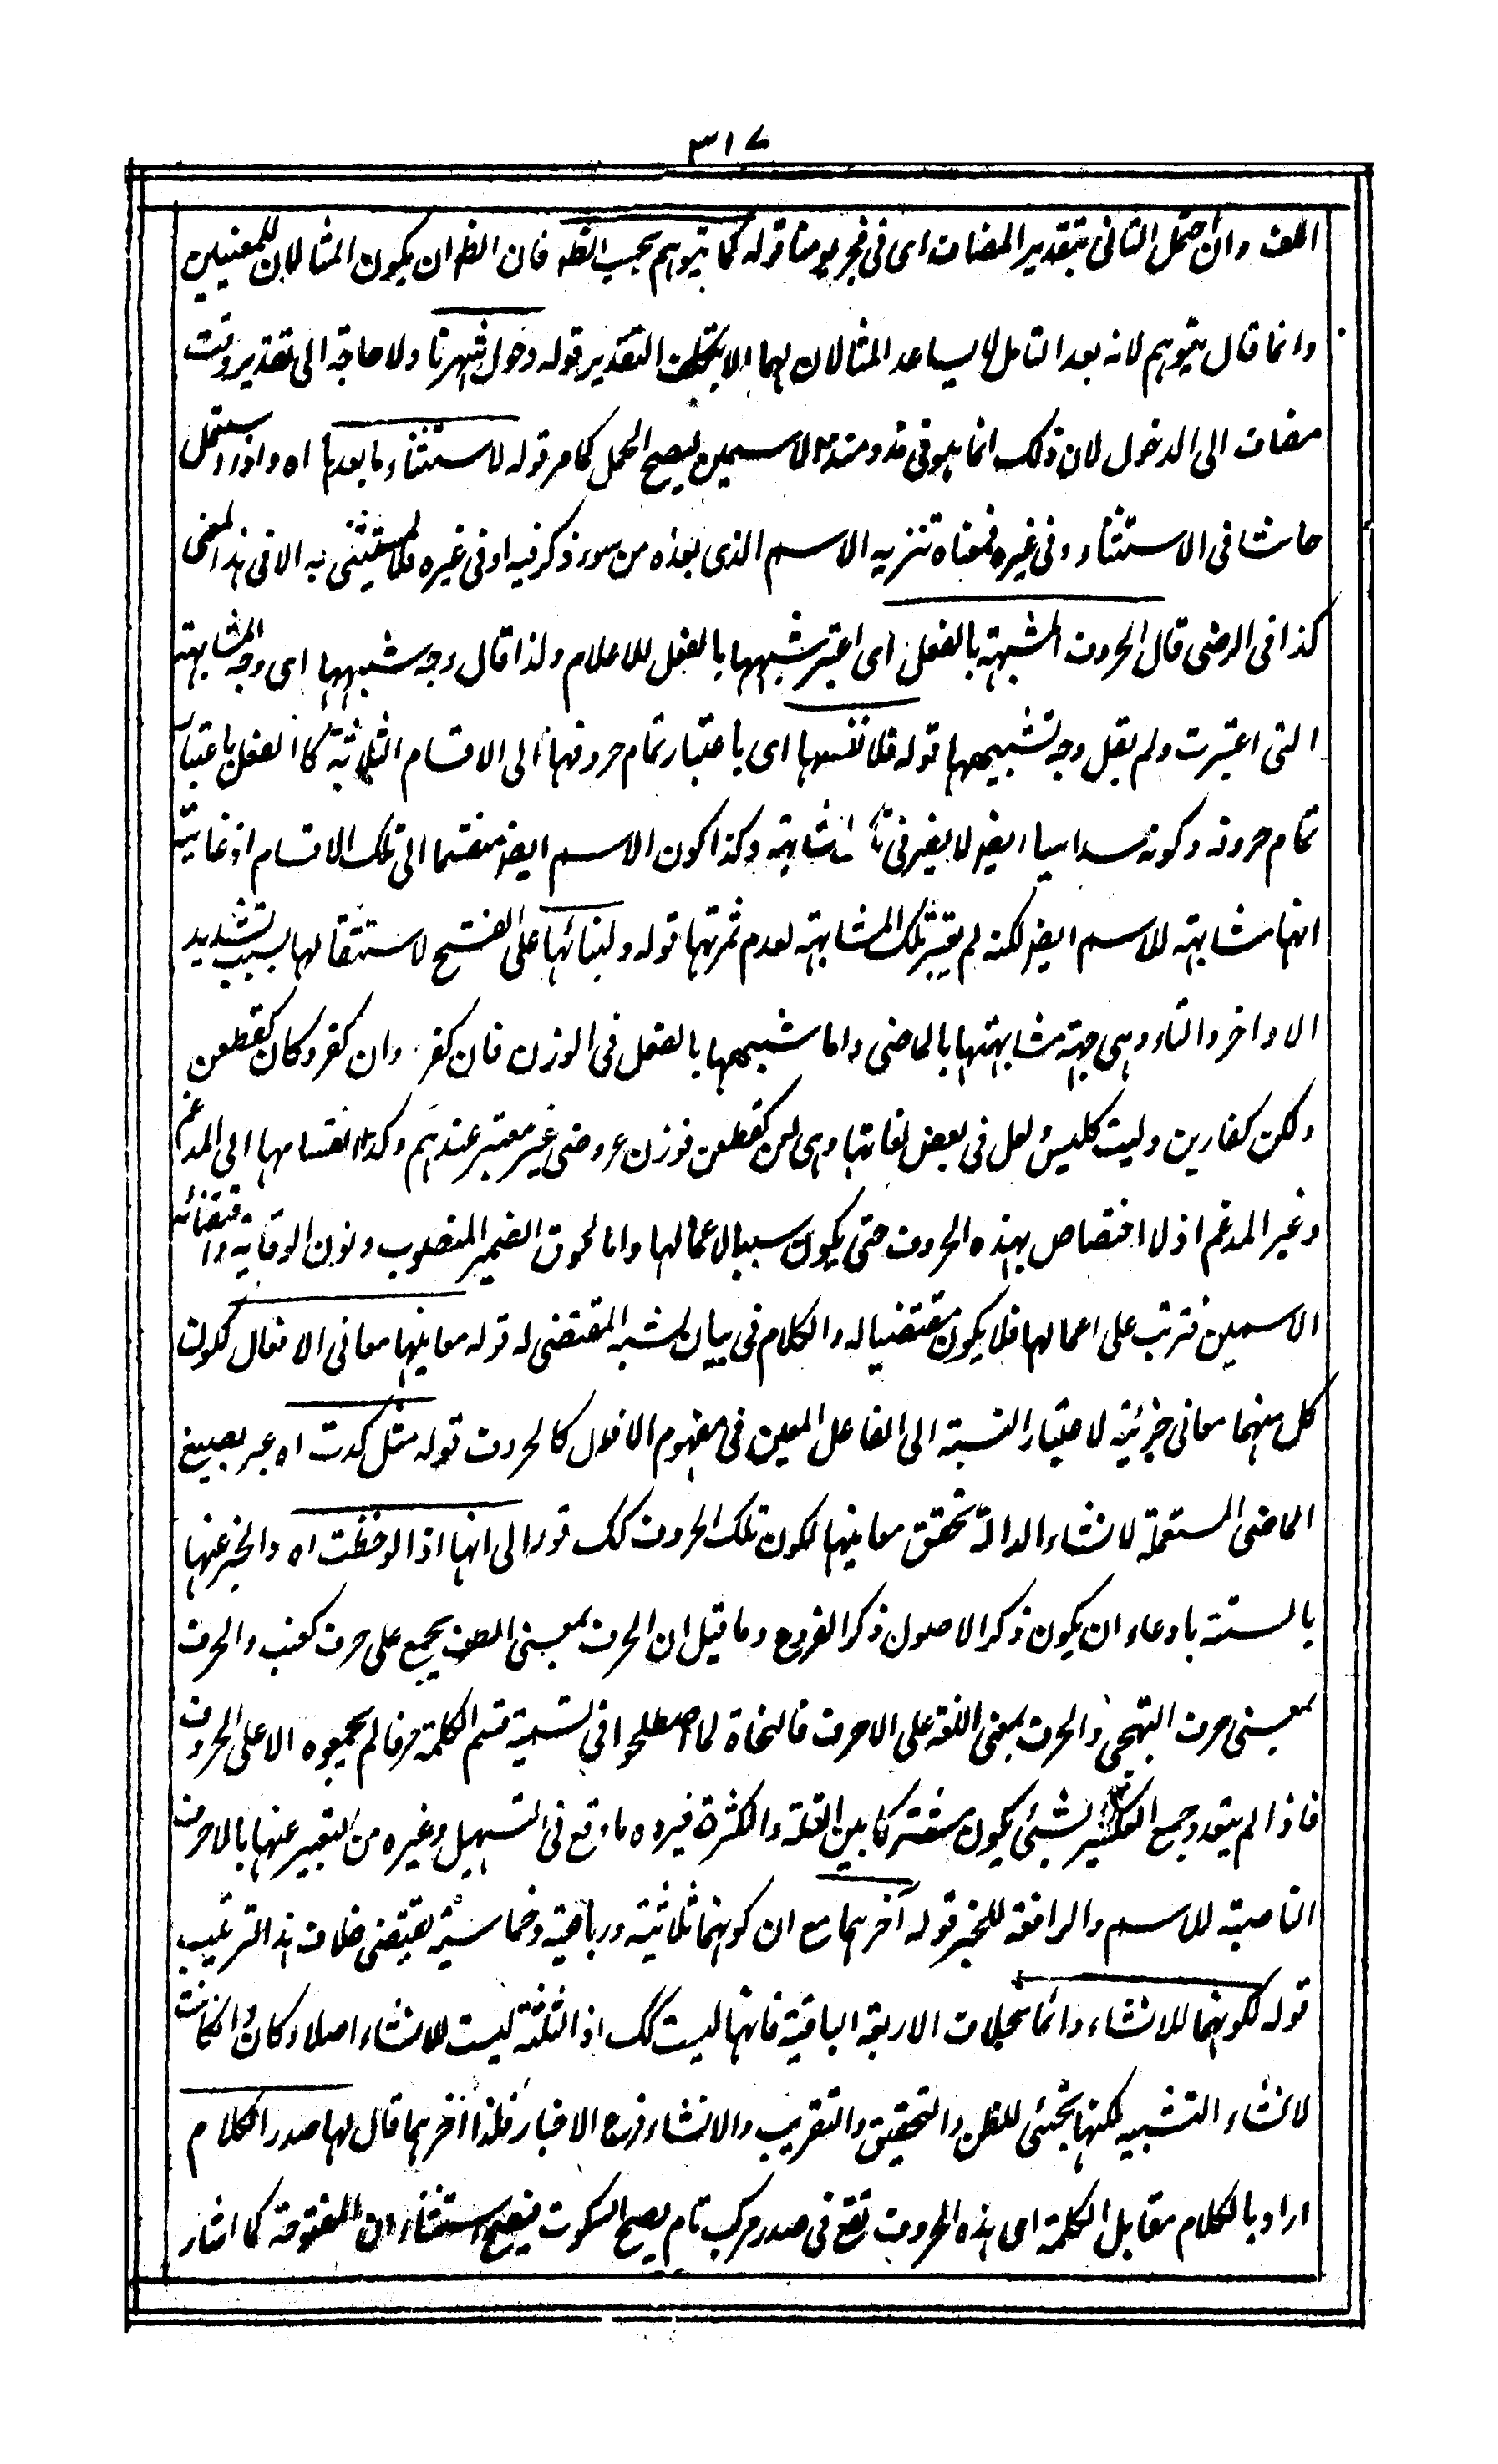 ٣١٧
اللف وان احتمل الثانى بتقدير المضاف اى فى فجر يومنا قوله كما يتوهم بحسب الظ فان الظ ان يكون المثالان للمعنيين
وانما قال يتوهم لانه بعد التامل لا يساعد المثالان لهما الا بتكلف التقدير قوله دخول شهرنا ولا حاجة الى تقدير وقت
مضاف الى الدخول لان ذلك انما هو فى مذ ومنذ الاسمين ليصح الحمل كما مر قوله لاستثناء ما بعدها اه واذا استعمل
حاشا فى الاستثناء وفى غيره فمعناه تنزيه الاسم الذى بعده من سوء ذكر فيه او فى غيره فلا يستثنى به الا فى هذا المعنى
كذا فى الرضى قال الحروف المشبهة بالفعل اى اعتبر شبهها بالفعل للاعلام ولذا قال وجه شبهها اى وجه المشابهة
التى اعتبرت ولم يقل وجه تشبيهها قوله فلانقسامها اى باعتبار تمام حروفها الى الاقسام الثلاثة كالفعل باعتبار
تمام حروفه وكونه سداسيا ايضا لا يضر فى تلك المشابهة وكذا كون الاسم ايضا منقسما الى تلك الاقسام اذ غايته
انها مشابهة للاسم ايضا لكنه لم يعتبر تلك المشابهة لعدم ثمرتها قوله ولبنائها على الفتح لاستثقالها بسبب تشديد
الاواخر والتاء وهى جهة مشابهتها بالماضى واما شبهها بالفعل فى الوزن فان كفر وان كفر وكان كقطعن
ولكن كضاربن وليت كليس ولعل فى بعض لغاتها وهى لعن كقطعن فوزن عروضى غير معتبر عندهم وكذا انقسامها الى المدغم
وغير المدغم اذ لا اختصاص بهذه الحروف حتى يكون سببا لاعمالها واما لحوق الضمير المنصوب ونون الوقاية واقتضائه
الاسمين فترتب على اعمالها فلا يكون مقتضيا له والكلام فى بيان الشبه المقتضى له قوله معانيها معانى الافعال لكون
كل منهما معانى جزئية لاعتبار النسبة الى الفاعل المعين فى مفهوم الافعال كالحروف قوله مثل كدت اه عبر بصيغ
الماضى المستعملة لانشاء الدالة تحقق معانيها لكون تلك الحروف كك قوله الى انها اذا لوحظت اه والخبر عنها
بالستة بادعاء ان يكون ذكر الاصول ذكر الفروع وما قيل ان الحرف بمعنى الطرف يجمع على حرف كعنب والحرف
بمعنى حرف التهجى والحرف بمعنى اللغة على الاحرف فالنحاة لما اصطلحوا فى تسمية قسم الكلمة حرفا لم يجمعوه الا على الحروف
فاذا لم يتعدد جمع التكسير لشئ يكون مشتركا بين القلة والكثرة فيرده ما وقع فى التسهيل وغيره من التعبير عنها بالاحرف
الناصبة للاسم والرافعة للخبر قوله آخرهما مع ان كونهما ثلاثية ورباعية وخماسية يقتضى خلاف هذا الترتيب
قوله لكونهما للانشاء دائما بخلاف الاربعة الباقية فانها ليست كك اذ الثلثة ليست للانشاء اصلا وكان وان كانت
لانشاء التشبيه لكنها يجئ للظن والتحقيق والتقريب والانشاء فرع الاخبار فلذا اخرهما قال لها صدر الكلام
اراد بالكلام مقابل الكلمة اى هذه الحروف تقع فى صدر مركب تام يصح السكوت فيصح استثناء ان المفتوحة كما اشار